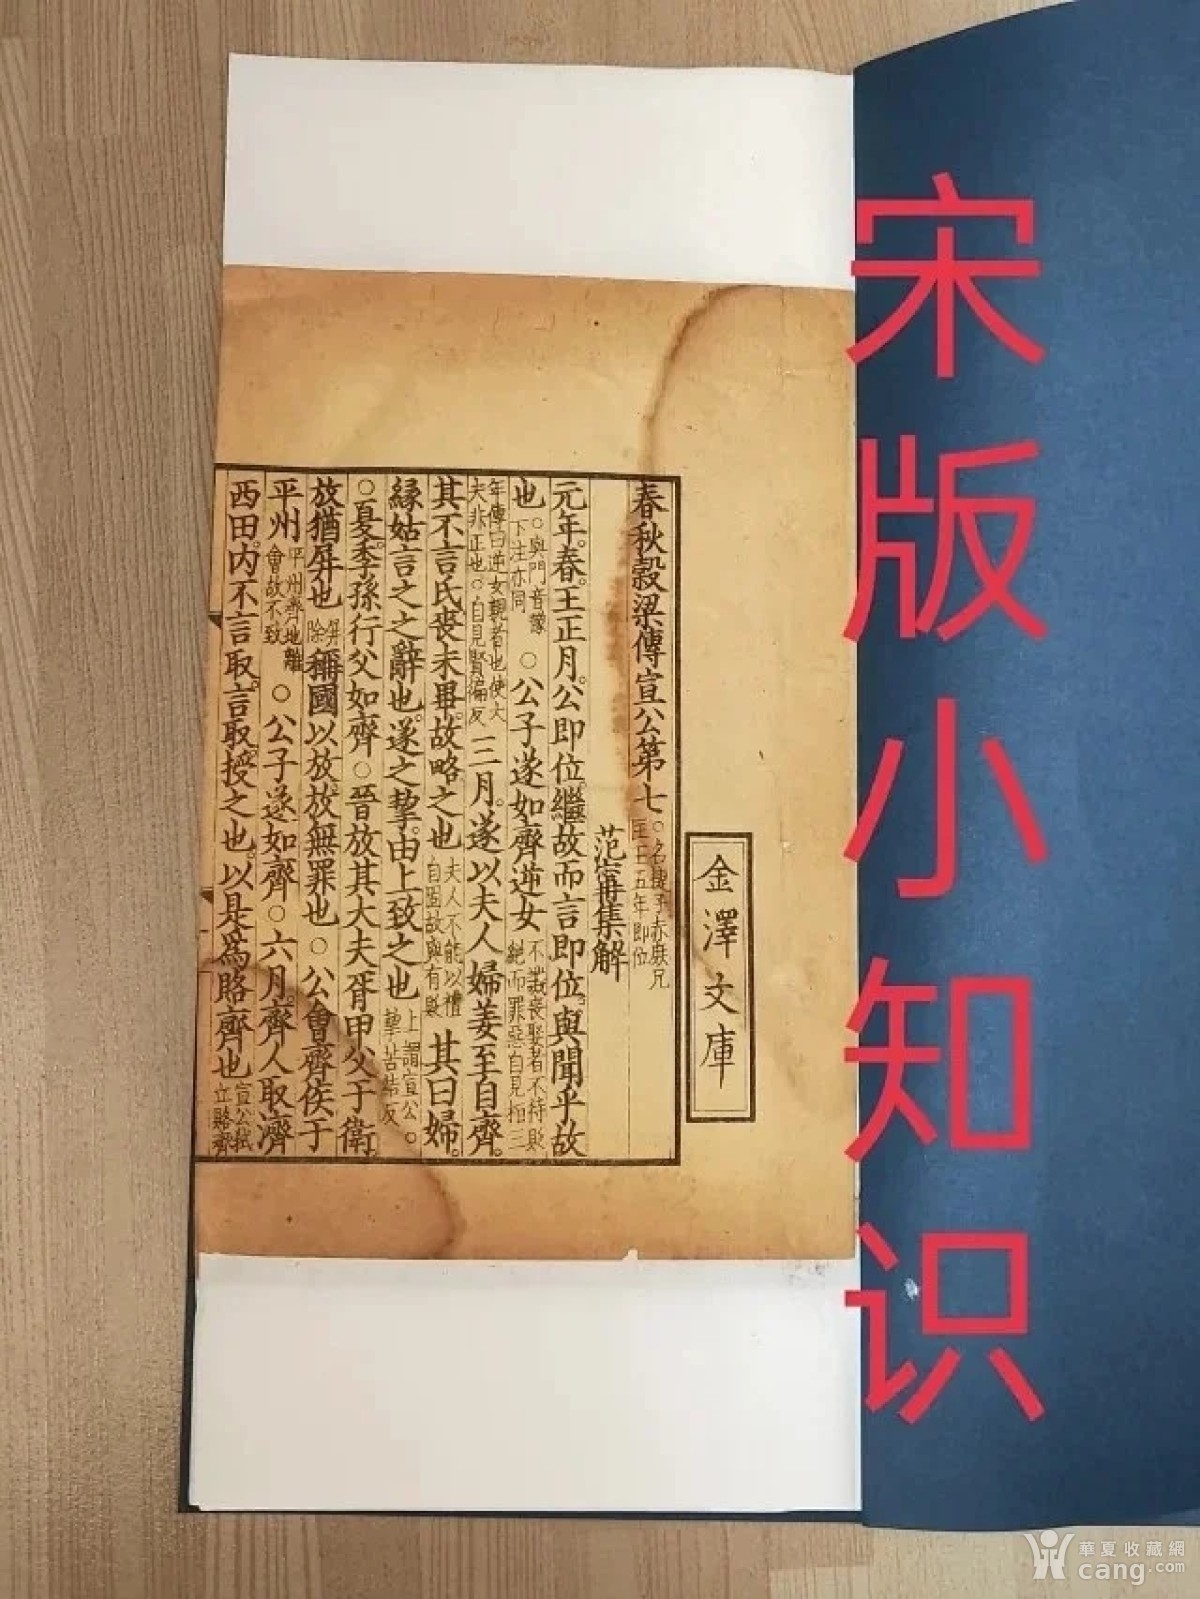 宋版小知识
金澤文庫
春秋穀梁傳宣公第七
○名捷子赤庶兄
匡王五年即位
范甯集解
元年。春。王正月。公即位。繼故而言即位。與聞乎故
也
○與聞音豫
下注亦同
○公子遂如齊逆女
不譏喪娶者不待貶
絕而罪惡自見桓三
年傳曰逆女親者也使大
夫非正也。○自見賢徧反
三月。遂以夫人婦姜至自齊。
其不言氏喪未畢。故略之也
夫人不能以禮
自固故與有貶
其曰婦。
緣姑言之之辭也。遂之挈。由上致之也
上謂宣公。○
挈苦結反
○夏。季孫行父如齊○晉放其大夫胥甲父于衛。
放猶屏也
屏
除
稱國以放。放無罪也○公會齊侯于
平州
平州齊地離
會故不致
○公子遂如齊○六月。齊人取濟
西田。內不言取。言取。授之也。以是爲賂齊也
宣公弒
立賂齊
華夏收藏網
cang.com